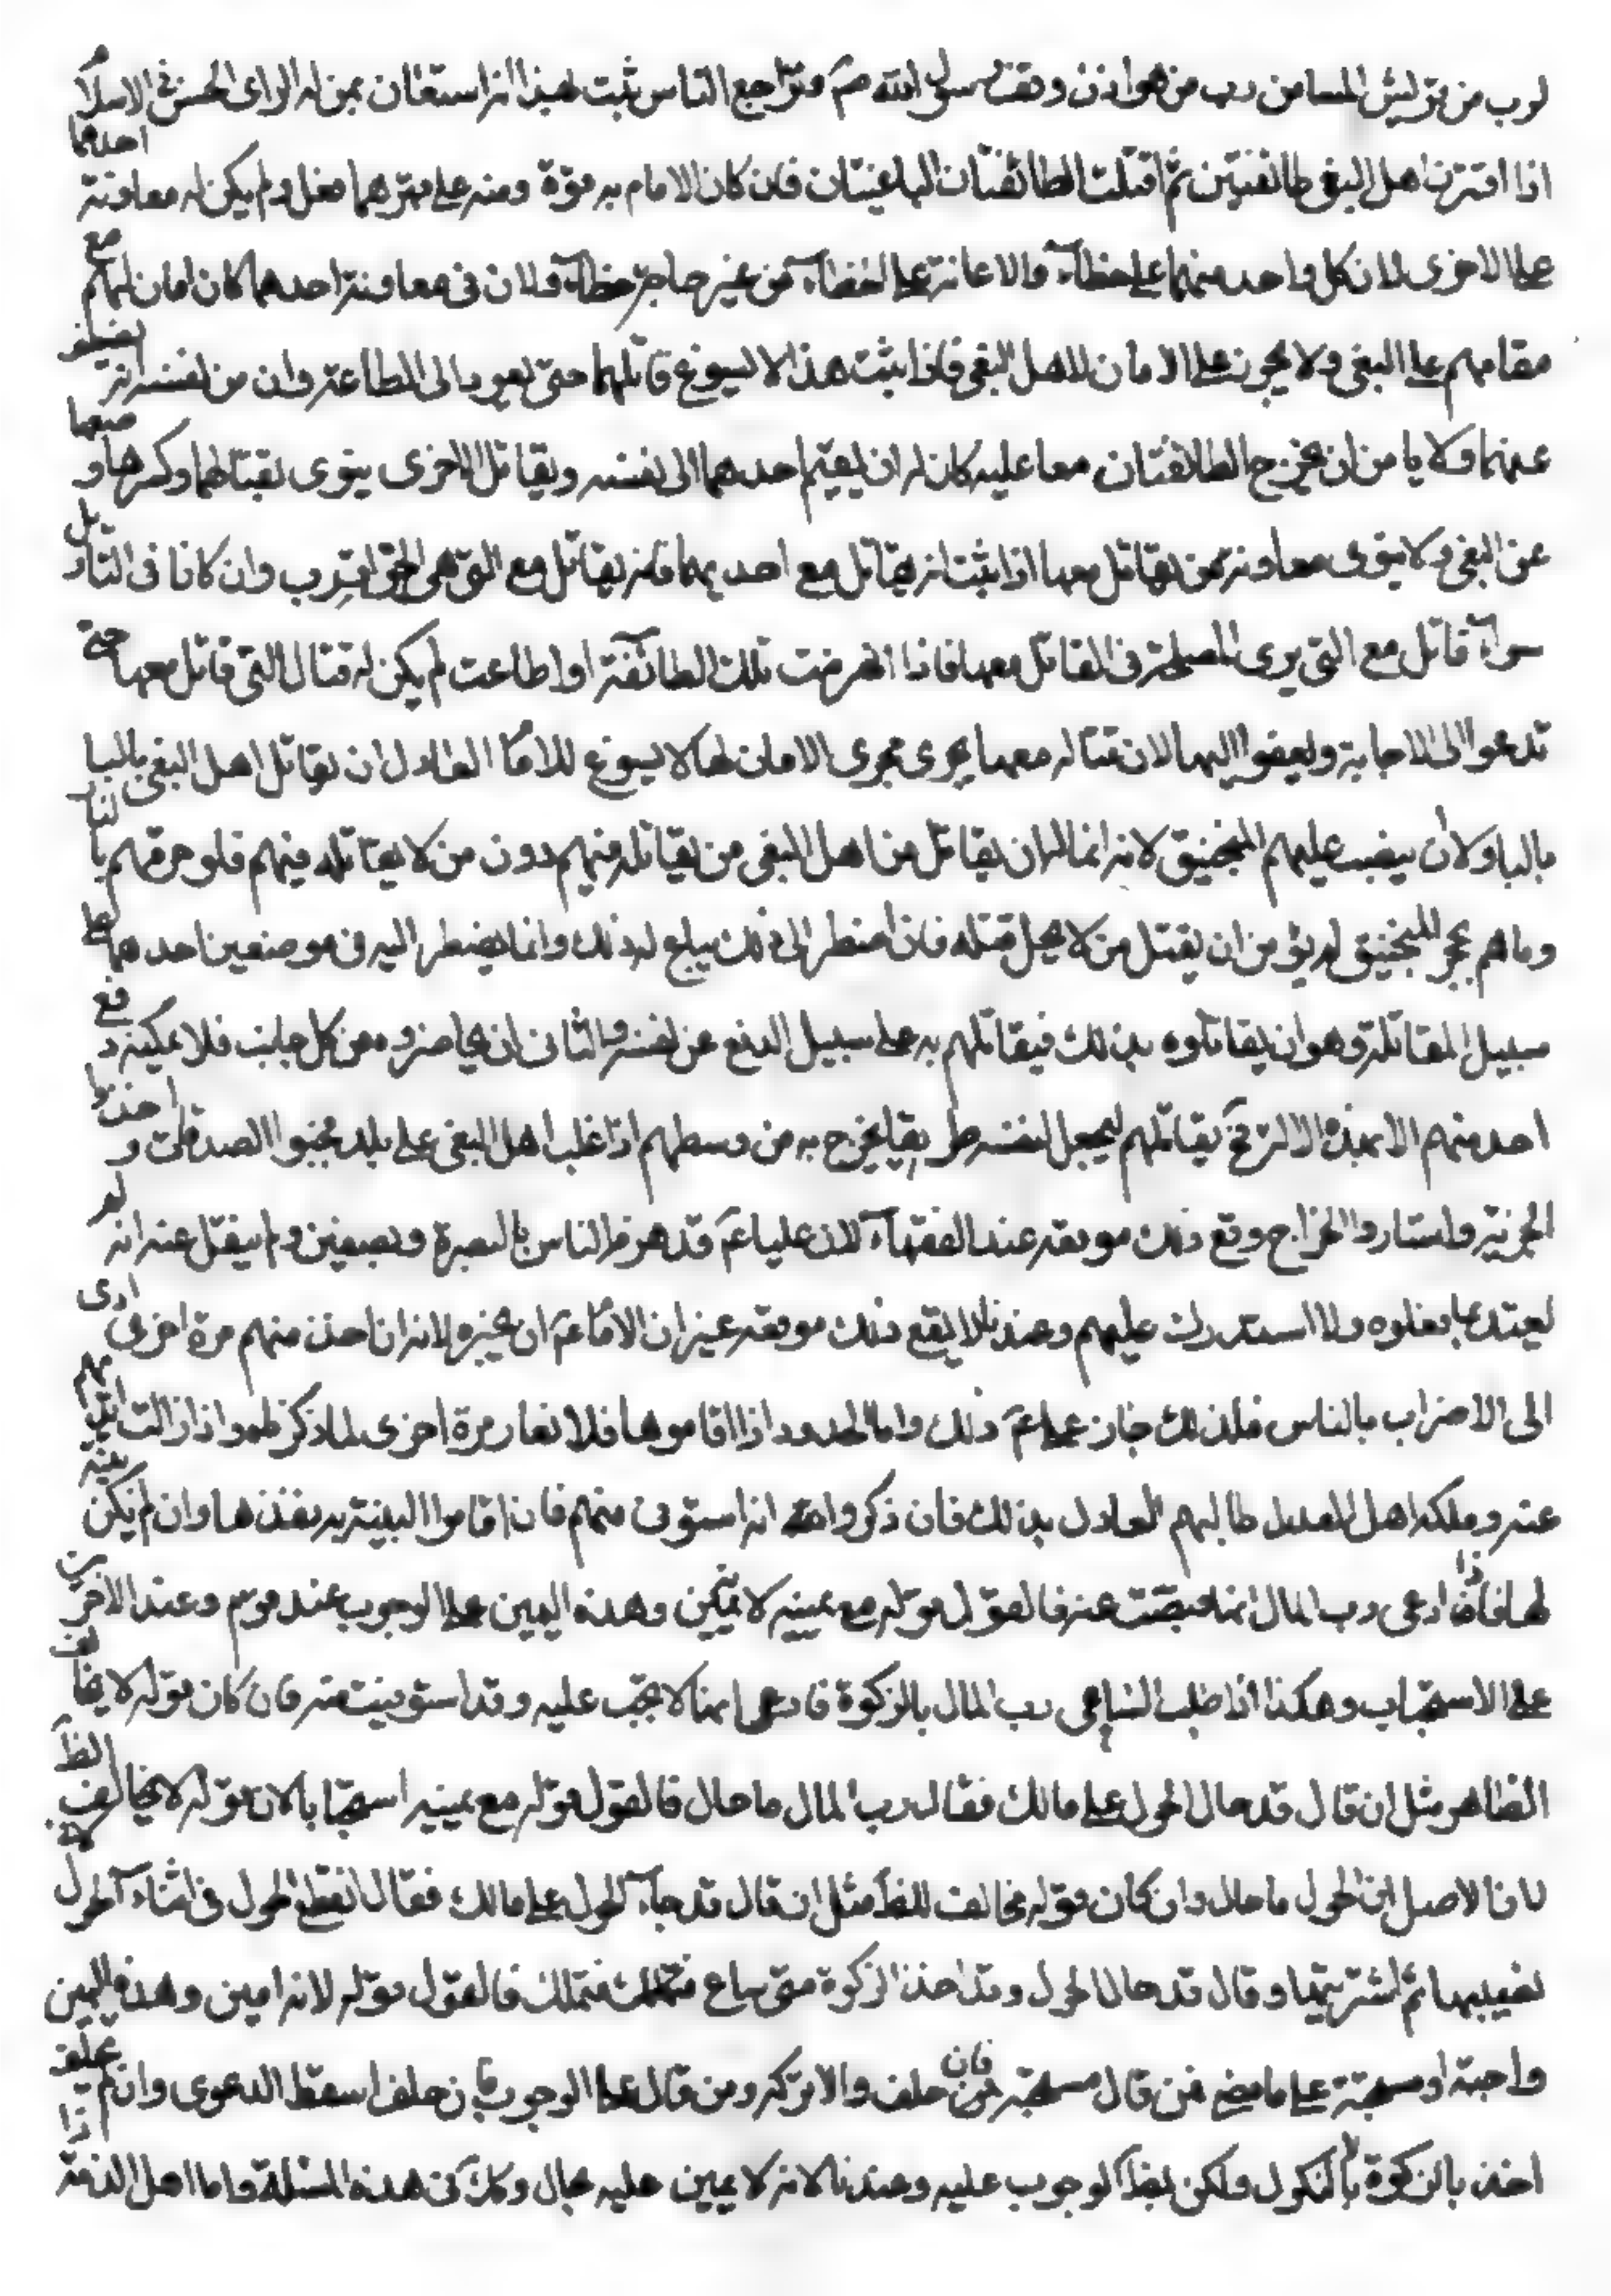 لرب من قريش الينا من رب من هوازن ووقف رسول الله صم وتراجع الناس ثبت بهذا انه استعان بمن له الراى الحسن فى الاسلام
اذا افترق اهل البغى طائفتين ثم اقتتلت الطائفتان الباغيتان فان كان الامام به قوة ومنه على قهرهما فعل ولم يكن له معاونة احدهما
على الاخرى لان كل واحد منهما على خطاء والاعانة على الخطاء من غير حاجة خطاء ولان فى معاونة احدهما كان امان لهم مع
مقامهم على البغى ولا يجوز على الامان لاهل البغى فاذا ثبت هذا لا يسوغ قاتلهما حتى يعودا الى الطاعة وان من نفسه انه يضعف
عنهما ولا يامن ان يخرج الطائفتان معا عليه كان له ان يضم احدهما الى نفسه ويقاتل الاخرى ينوى بقتالها وكسرها و منعها
عن البغى ولا ينوى معاونة من يقاتل معها اذا ثبت انه يقاتل مع احديهما فانه يقاتل مع التى هى الى الحق اقرب وان كانا فى التاويل
سواء قاتل مع التى يرى المصلحة فى القتال معها فاذا انهزمت تلك الطائفة او اطاعت لم يكن له قتال التى قاتل معها حتى
تدعوا الى الاجابة ويعفوا اليها لان قتاله معها يجرى مجرى الامان لها لا يسوغ للامام العادل ان يقاتل اهل البغى بالنبا
بالنار ولا ان ينصب عليهم المنجنيق لانه انما له ان يقاتل من اهل البغى من يقاتله منهم دون من لا يقاتله منهم فلو حرقهم بالنار
وماهم بحجر المنجنيق لم يؤمن ان يقتل من لا يحل قتله فان اضطر الى ذلك يباح له ذلك وانما يضطر اليه فى موضعين احدهما على
سبيل المقاتلة وهو ان يقاتلوه بذلك فيقاتلهم به على سبيل الدفع عن نفسه والثانى ان يحاصروه من كل جانب فلا يمكنه دفع
احد منهم الا بهذه الالة فح يقاتلهم ليجعل لنفسه طريقا يخرج به من وسطهم اذا غلب اهل البغى على بلد فجبوا الصدقات و اخذوا
الجزية واستادوا الخراج وقع ذلك موقعه عند الفقهاء لان عليا عم قد هزم الناس بالبصرة وبصفين ولم ينقل عنه انه لم
يعتد بما فعلوه ولا استدرك عليهم وعندنا لا يقع ذلك موقعه غير ان الامام عم ان يجيزه لانه ان اخذ منهم مرة اخرى ادى
الى الاضراب بالناس فلذلك جاز على عم ذلك واما الحدود اذا اقاموها فلا تعاد مرة اخرى لما ذكر لهم واذا زالت ايديهم
عنه وملكه اهل العدل طالبهم العادل بذلك فان ذكروا انه استوفى منهم فان اقاموا البينة به نفذها وان لم يكن بينة
لها فاذا ادعى رب المال انها قبضت عنه فالقول قوله مع يمينه لانه امين وهذه اليمين على الوجوب عند قوم وعند الاخرين
على الاستحباب وهكذا اذا طلب الساعى رب المال بالزكوة فادعى انها لا تجب عليه وقد استوفيت منه فان كان قوله لا يخالف
الظاهر مثل ان قال قد حال الحول على مالك فقال رب المال ما حال فالقول قوله مع يمينه استحبابا لان قوله لا يخالف الظ
لان الاصل ان الحول ما حال وان كان قوله مخالف للظ مثل ان قال قد جاء الحول على مالك فقال انقطع الحول فى اثناء الحول
نصيبها ثم اشتريتها وقال قد حال الحول وقد اخذ الزكوة متى ساع فتملك فالقول قوله لانه امين وهذه اليمين
واجبة او مستحبة على ما مضى فمن قال مستحبة فان حلف والا ترك ومن قال على الوجوب فان حلف اسقط الدعوى وان لم يحلف
اخذ بالزكوة لا بالنكول ولكن بظ الوجوب عليه وعندنا لانه لا يمين عليه بحال وكك فى هذه المسئلة واما اهل الذمة اذا